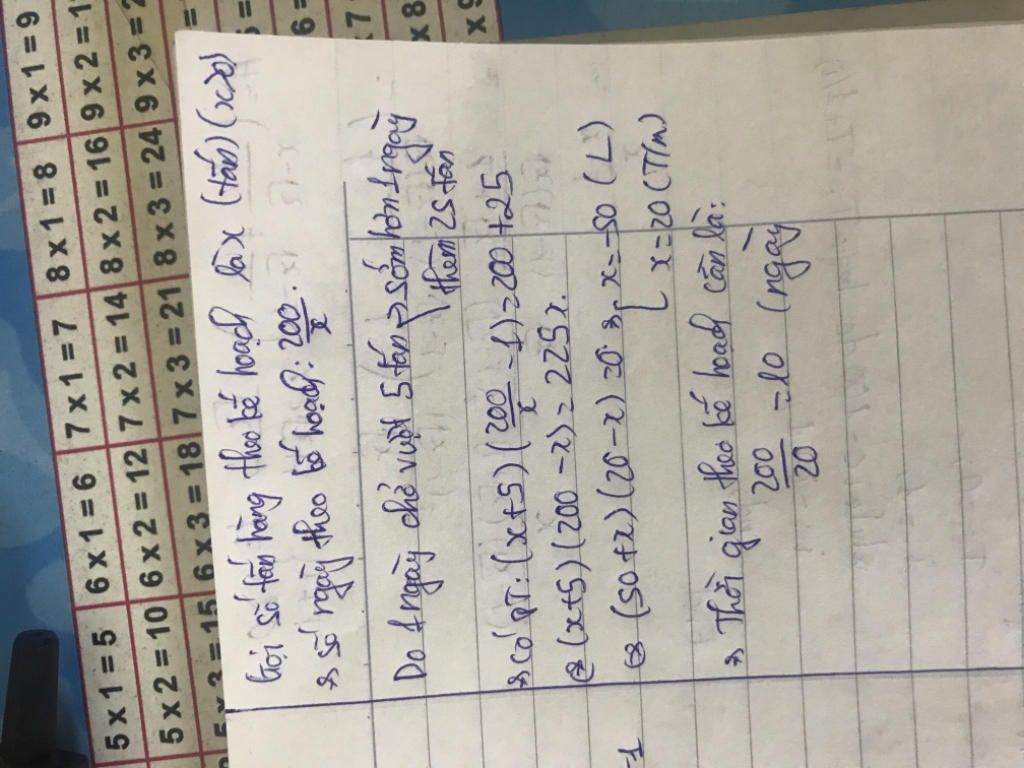 5 x 1 = 5 6 x 1 = 6 7 x 1 = 7 8 x 1 = 8 9 x 1 = 9
5 x 2 = 10 6 x 2 = 12 7 x 2 = 14 8 x 2 = 16 9 x 2 = 1
x 3 = 15 6 x 3 = 18 7 x 3 = 21 8 x 3 = 24 9 x 3 = 2
Gọi số tấn hàng theo kế hoạch là x (tấn) (x>0)
=> số ngày theo kế hoạch: 200/x.
Do 1 ngày chở vượt 5 tấn => sớm hơn 1 ngày
thêm 25 tấn
=> có PT: (x+5)(200/x - 1) = 200 + 25
<=> (x+5)(200 - x) = 225x.
<=> (50+x)(20-x) = 0 => [ x = -50 (L)
x = 20 (T/m)
=> Thời gian theo kế hoạch cần là:
200/20 = 10 (ngày
-1